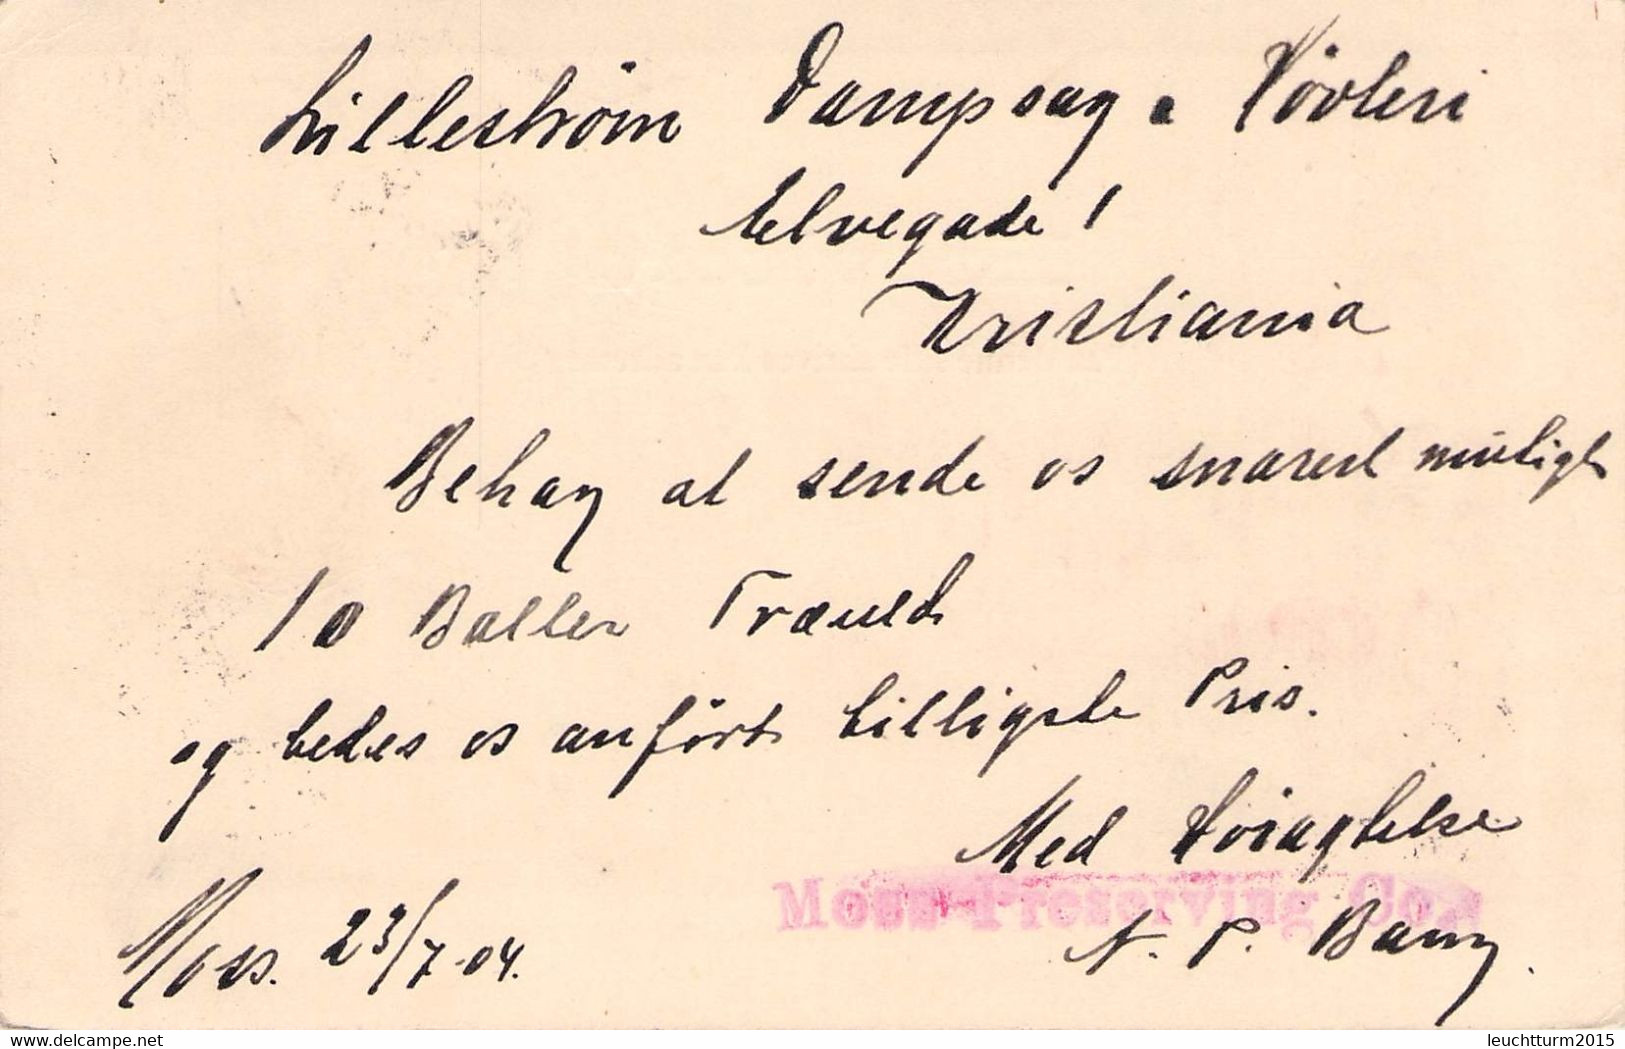 Lilleström Dampsag & Hövleri
Elvegade 1
Kristiania
Behag at sende os snarest muligt
10 Baller Træuld
og bedes os anfört billigste Pris.
Med Höiagtelse
Moss Preserving Co.
N. P. Bang.
Moss. 23/7-04.
www.delcampe.net
leuchtturm2015